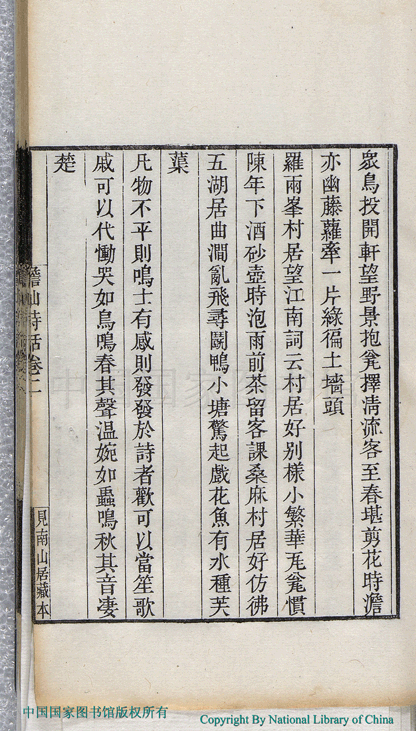 眾鳥投開軒望野景抱瓮擇清流客至春堪剪花時澹
亦幽藤蘿牽一片綠徧土墻頭
羅雨峯村居望江南詞云村居好别樣小繁華瓦瓮慣
陳年下酒砂壺時泡雨前茶留客課桑麻村居好仿彿
五湖居曲澗亂飛尋鬪鴨小塘驚起戲花魚有水種芙
蕖
凡物不平則鳴士有感則發發於詩者歡可以當笙歌
戚可以代慟哭如鳥鳴春其聲温婉如蟲鳴秋其音凄
楚
山詩話卷二
見南山居藏本
中国国家图书馆版权所有
Copyright By National Library of China